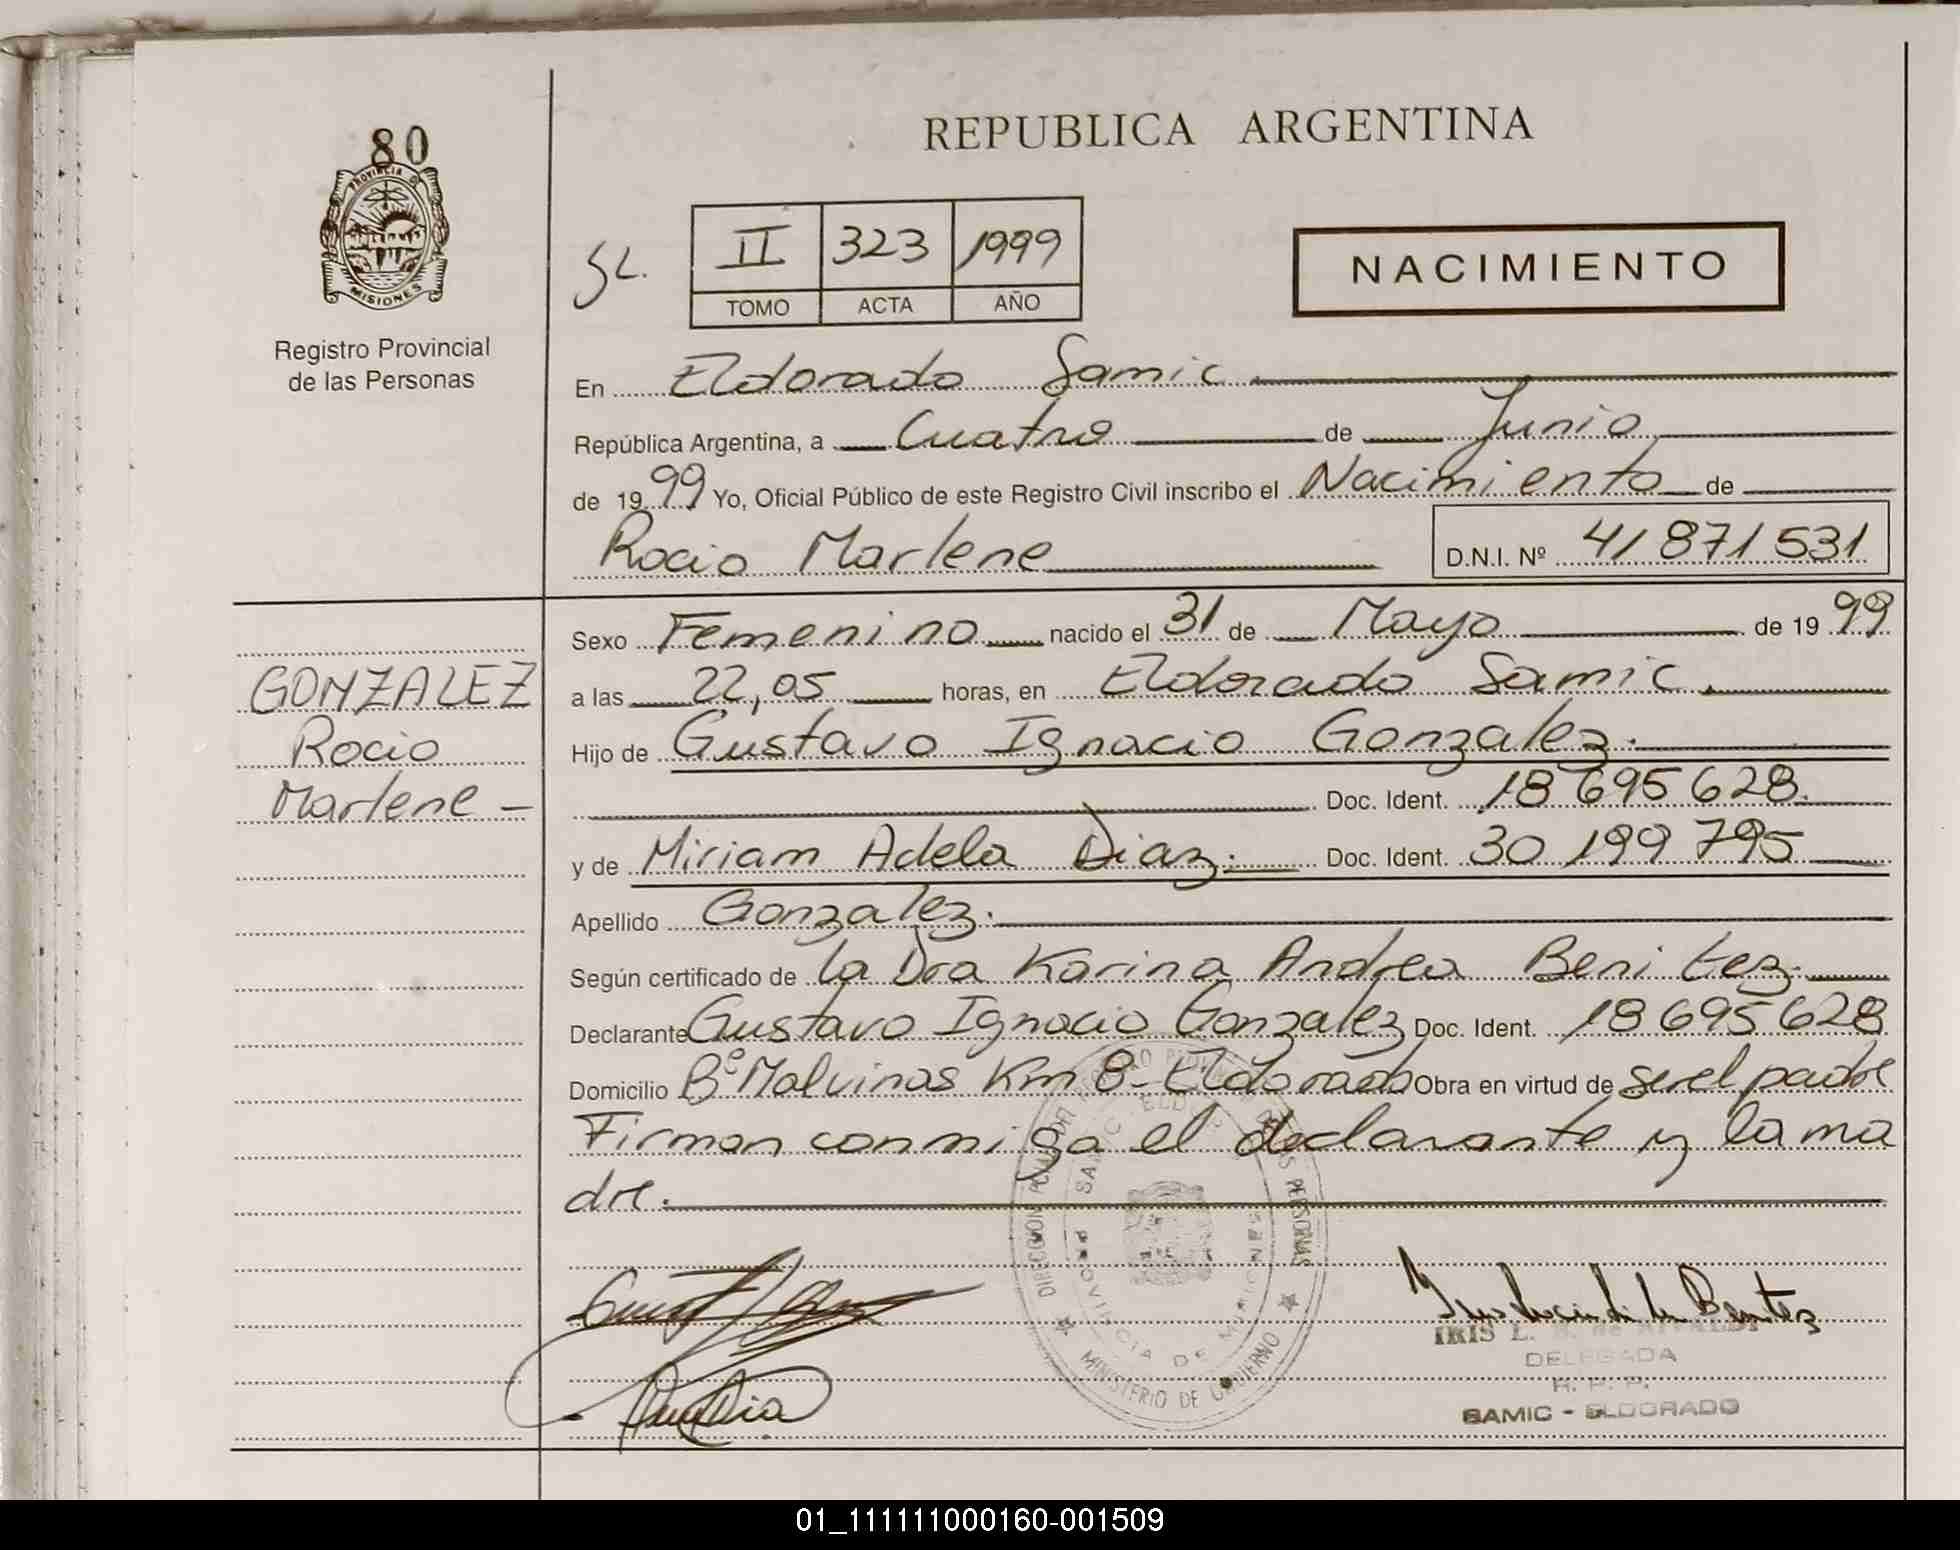 80
PROVINCIA D
MISIONES
Registro Provincial
de las Personas
REPUBLICA ARGENTINA
SL.
II 323 1999
TOMO ACTA AÑO
NACIMIENTO
En Eldorado Samic
República Argentina, a Cuatro de Junio
de 1999 Yo, Oficial Público de este Registro Civil inscribo el Nacimiento de
Rocio Marlene D.N.I. Nº 41 871 531
GONZALEZ
Rocio
Marlene -
Sexo Femenino nacido el 31 de Mayo de 1999
a las 22,05 horas, en Eldorado Samic
Hijo de Gustavo Ignacio Gonzalez.
Doc. Ident. 18 695 628.
y de Miriam Adela Diaz. Doc. Ident. 30 199 795
Apellido Gonzalez.
Según certificado de la Dra Karina Andrea Benitez.
Declarante Gustavo Ignacio Gonzalez Doc. Ident. 18 695 628
Domicilio Bº Malvinas Km 8 - Eldorado Obra en virtud de ser el padre
Firman conmigo el declarante y la ma
dre.
PROVINCIA DE MISIONES
MINISTERIO DE GOBIERNO
IRIS L.
DELEGADA
R. P. P.
SAMIC - ELDORADO
01_111111000160-001509